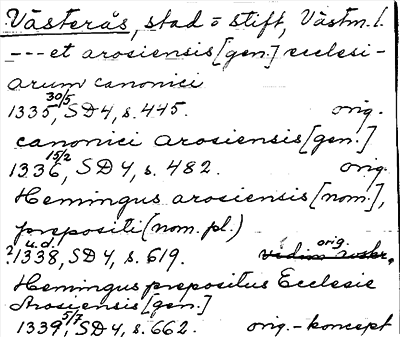 Västerås, stad o stift, Västm. l.
--- et arosiensis [gen.] ecclesi-
arum canonici
1335 30/5, SD 4, s. 445. orig.
canonici arosiensis [gen.]
1336 15/2, SD 4, s. 482. orig.
Hemingus arosiensis [nom.],
prepositi (nom. pl.)
? 1338 u.d., SD 4, s. 619. orig.
Hemingus prepositus Ecclesie
Arosiensis [gen.]
1339 5/7, SD 4, s. 662. orig.-koncept